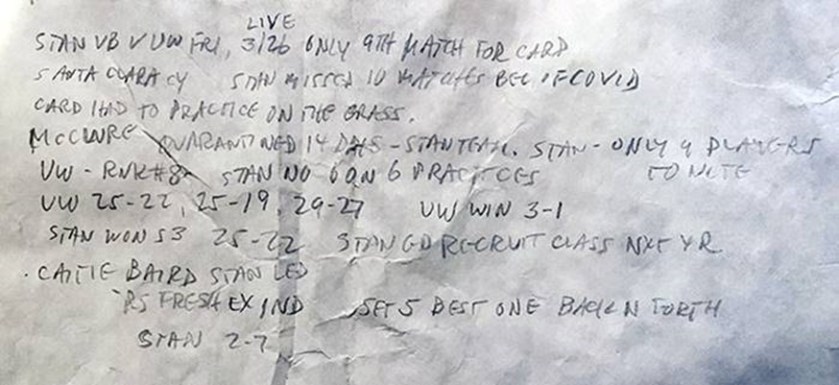 LIVE
STAN VB V UW FRI, 3/26 ONLY 9TH MATCH FOR CARD
SANTA CLARA CY STAN MISSED 10 MATCHES BEC OF COVID
CARD HAD TO PRACTICE ON THE GRASS.
MCCLURE QUARANTINED 14 DAYS - STAN TEAM. STAN - ONLY 9 PLAYERS
UW - RNK #8 STAN NO 6 ON 6 PRACTICES TO NITE
UW 25-22, 25-19, 29-27 UW WIN 3-1
STAN WON S3 25-22 STAN GD RECRUIT CLASS NXT YR
. CAITIE BAIRD STAN LED
RS FRESH EX IND SET 5 BEST ONE BACK N FORTH
STAN 2-7